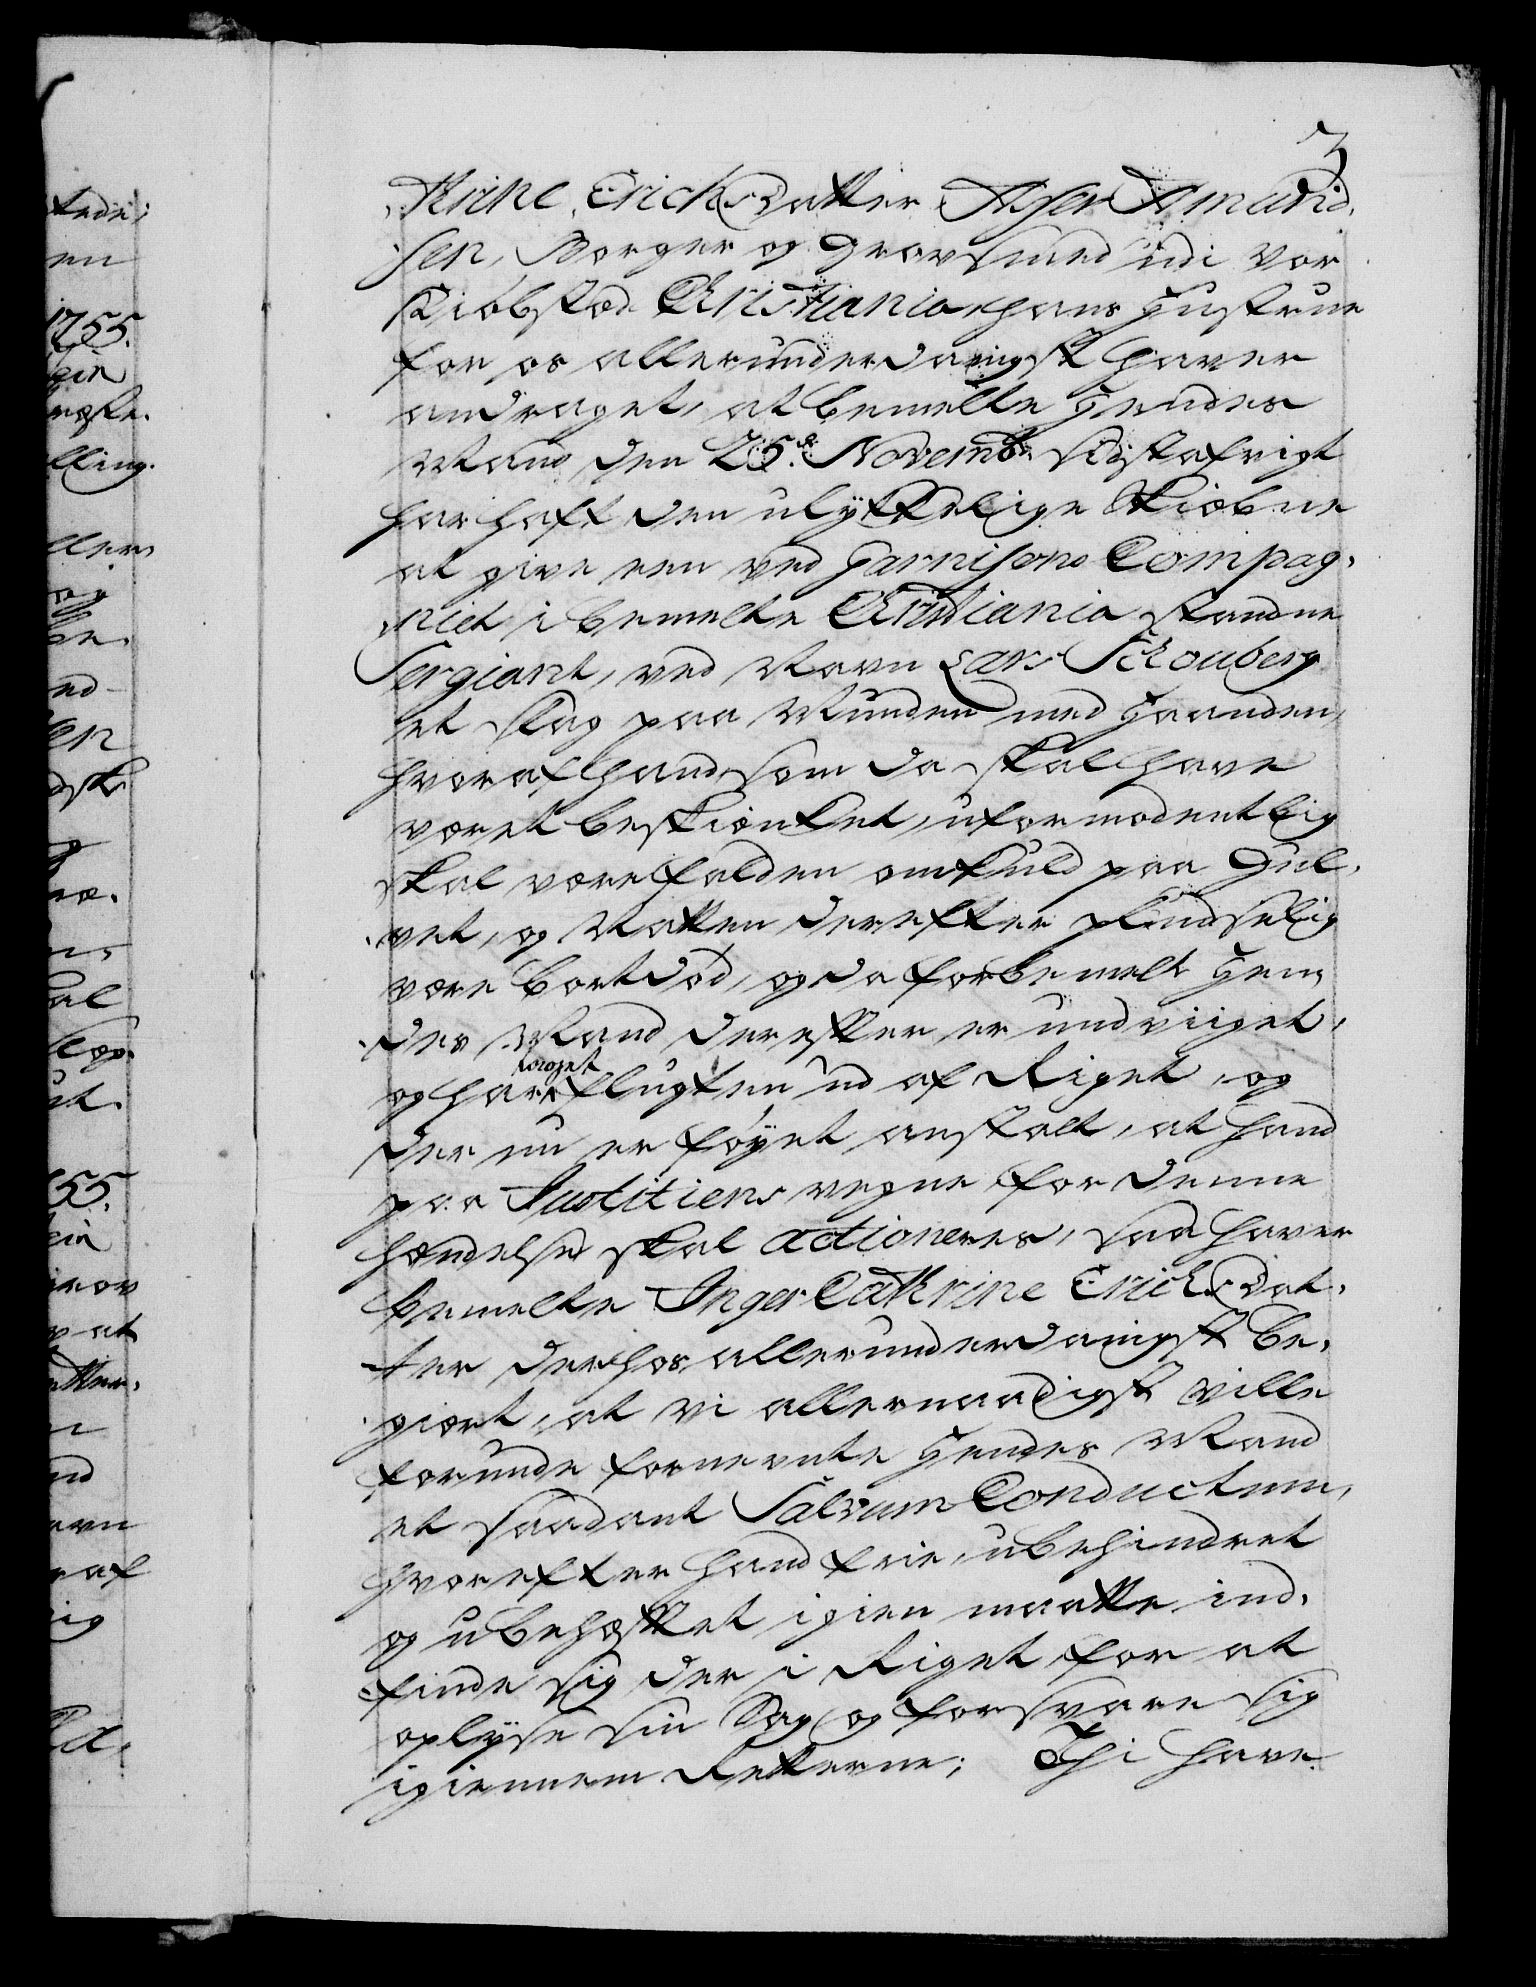 3
thrine Ericksdatter Asser Amunds
sen, Borger og Grovsmed udi vor
Kiøbstæd Christiania, hans Hustrue
for os allerunderdanigst haver
andraget, at bemelte Hendes
Mand den 25de Novembr: sidstafvigt
har haft den ulykkelige Skiæbne
at give een ved Garnisons Compag-
niet i bemelte Christiania standne
Sergiant, ved Navn Lars Schouberg
et slag paa Munden med Haanden,
hvoraf hand, som da skal have
været beskiænket, uformodentlig
skal være falden omkuld paa Gul-
vet, og Natten derefter pludselig
være bortdød, og da forbemelte Hen-
des Mand derefter er undviiget,
og har taget flugten ud af Riget, og
der nu er føyet anstalt, at hand
paa Justitiens vegne for denne
hændelse skal actioneres, saa haver
bemelte Inger Cathrine Ericksdat-
ter derhos allerunderdanigst be-
giært, at vi allernaadigst ville
forunde fornevnte Hendes Mand
et saadant Salvum Conductum,
hvorefter hand frie, ubehindret
og ubehæftet igien maatte ind-
finde sig der i Riget for at
oplyse sin Sag og forsvare sig
igiennem Retterne; Thi have